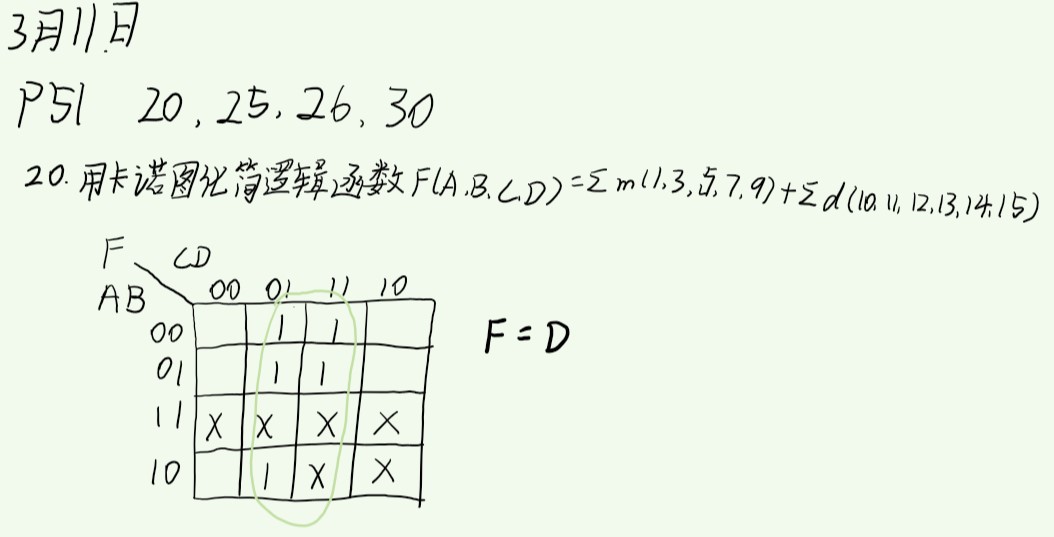 3月11日
P51 20, 25, 26, 30
20. 用卡诺图化简逻辑函数 F(A,B,C,D)=Σm(1,3,5,7,9)+Σd(10,11,12,13,14,15)
F CD
AB 00 01 11 10
00 1 1
01 1 1
11 X X X X
10 1 X X
F = D